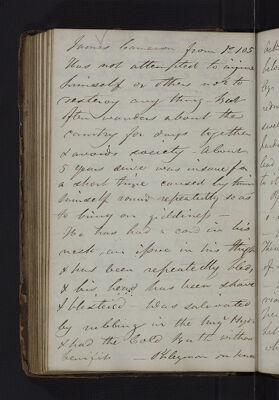 James Cameron from P. 105
Has not attempted to injure
himself or others nor to
destroy any thing - but
often wanders about the
country for days together
& avoids society - About
5 years since was insane for
a short time caused by turning
himself round repeatedly so as
to bring on giddiness -
He has had a cord in his
neck, an issue in his thigh
& has been repeatedly bled,
& his head has been shaved
& blistered - Was salivated
by rubbing in the
& had the Cold Bath without
benefit -